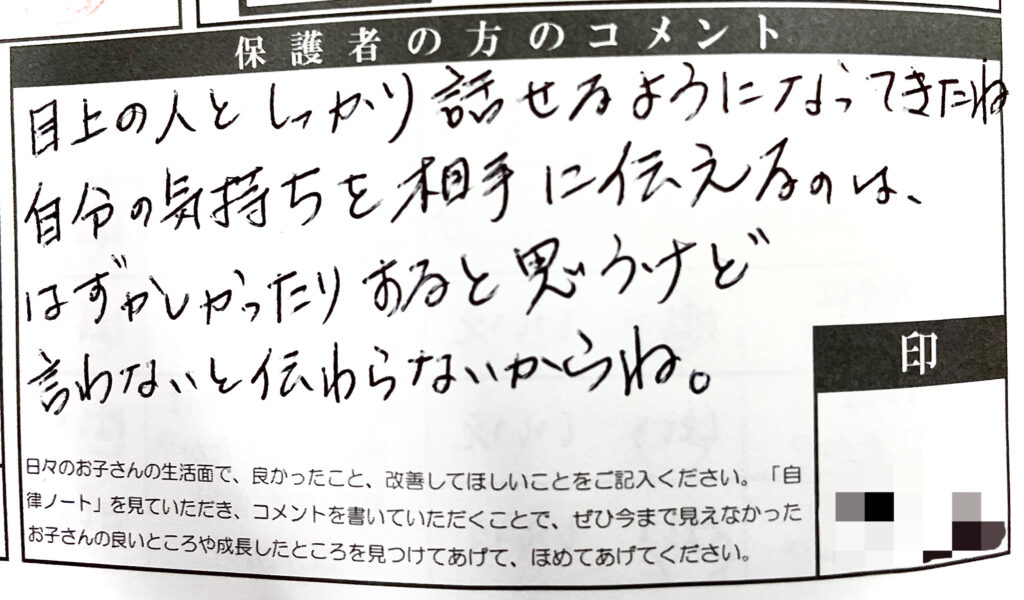 保護者の方のコメント
目上の人としっかり話せるようになってきたね
自分の気持ちを相手に伝えるのは、
はずかしかったりすると思うけど
言わないと伝わらないからね。
印
日々のお子さんの生活面で、良かったこと、改善してほしいことをご記入ください。「自
律ノート」を見ていただき、コメントを書いていただくことで、ぜひ今まで見えなかった
お子さんの良いところや成長したところを見つけてあげて、ほめてあげてください。